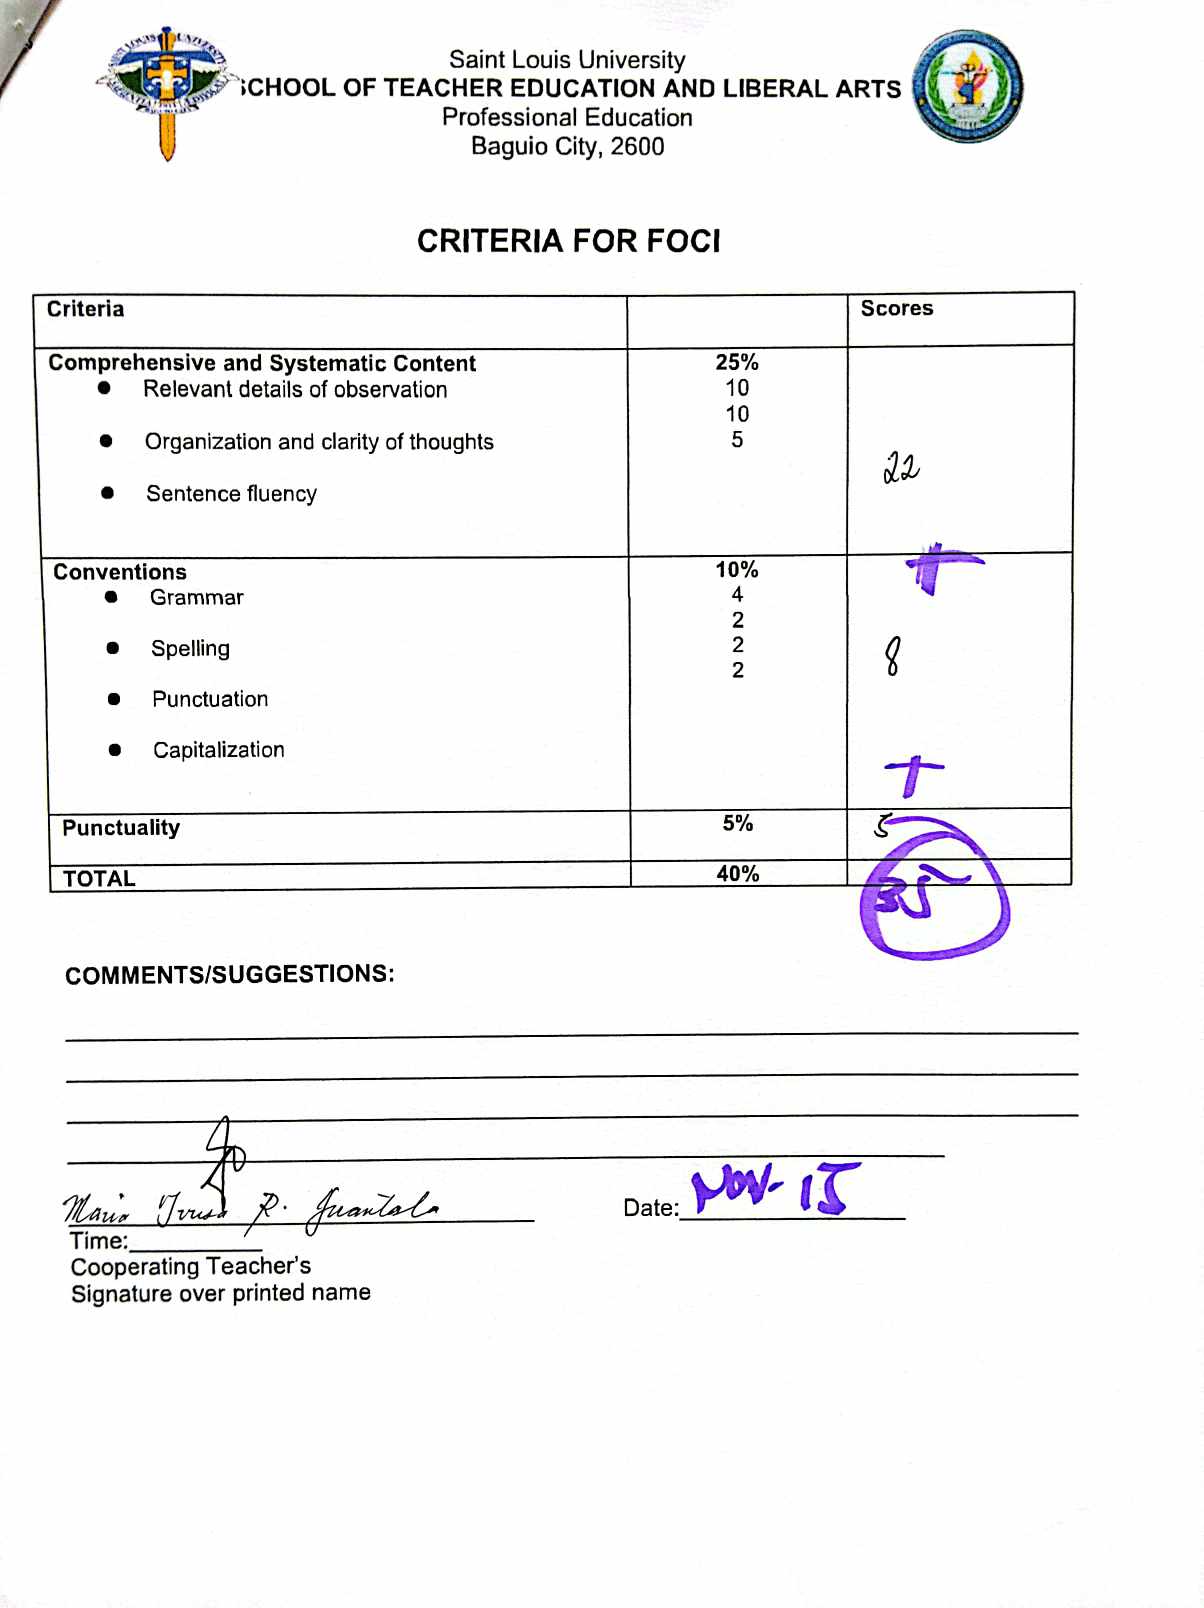 Saint Louis University
SCHOOL OF TEACHER EDUCATION AND LIBERAL ARTS
Professional Education
Baguio City, 2600
CRITERIA FOR FOCI
Criteria Scores
Comprehensive and Systematic Content 25%
● Relevant details of observation 10
10
● Organization and clarity of thoughts 5
22
● Sentence fluency
+
Conventions 10%
● Grammar 4
2
● Spelling 2
8
2
● Punctuation
● Capitalization
+
Punctuality 5% 5
TOTAL 40% 35
COMMENTS/SUGGESTIONS:
R. Date: Nov- 15
Time:
Cooperating Teacher's
Signature over printed name